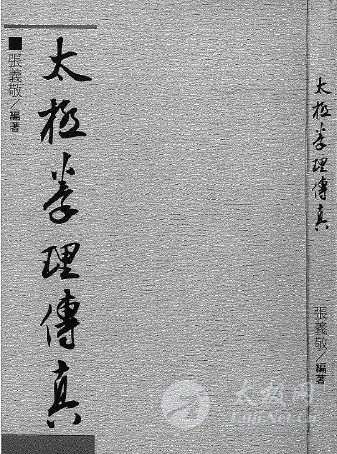 太極拳理傳真
■張義敬/編著
太極拳理傳真
張義敬/編著
太极网